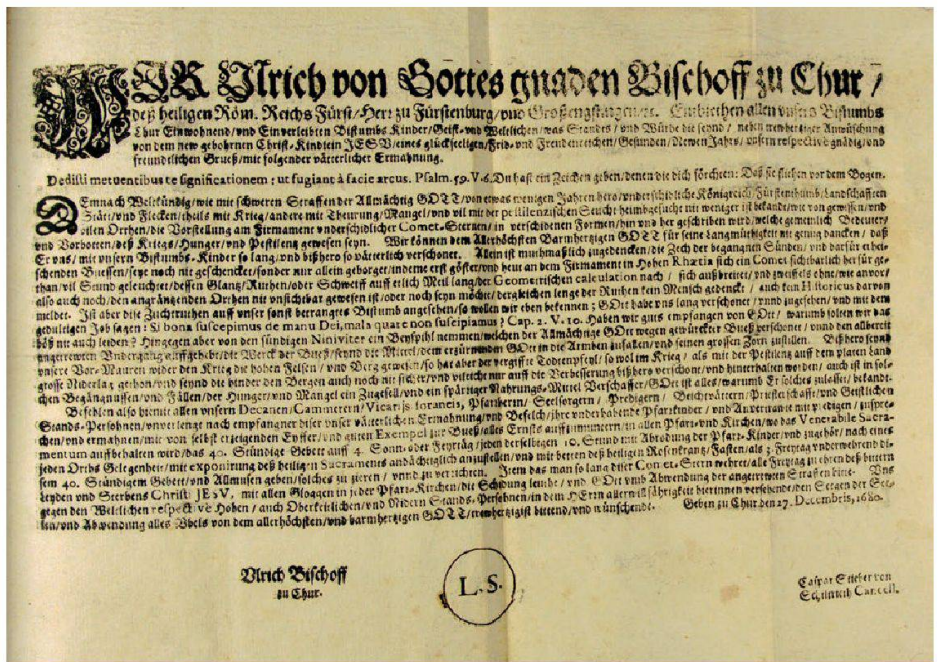 WIR Ulrich von Gottes gnaden Bischoff zu Chur /
deß heiligen Röm. Reichs Fürst / Herr zu Fürstenburg / vnd Großengstingen / ꝛc. Entbiethen allen vnsers Bistumbs
Chur Einwohnend / vnd Einverleibten Bistumbs Kinder / Geist- vnd Weltlichen / was Standes / vnd Würde die seynd / neben trewhertziger Anwüschung
von dem new gebohrnen Christ-Kindlein JESV / eines glückseeligen / Frid- vnd Frendenreichen / Gesunden / Newen Jahrs / vnsern respectivè gnädig / vnd
freundlichen Grueß / mit folgender vätterlicher Ermahnung.
Dedisti metuentibus te significationem: ut fugiant à facie arcus. Psalm. 59. V. 6. Du hast ein Zeichen geben / denen die dich förchten: Daß sie fliehen vor dem Bogen.
DEmnach Weltkündig / wie mit schweren Straffen der Allmächtig GOTT / von etwas wenigen Jahren hero / vnderschidliche Königreich / Fürstenthumb / Landschafften
Stätt / vnd Flecken / theils mit Krieg / andere mit Theurung / Mangel / vnd vil mit der pestilenzischen Seucht heimbgesucht / nit weniger ist bekandt / wie von gewissen / vnd
eilen Orthen / die Vorstellung am Firmament vnderschidlicher Comet-Sternen / in verschidenen Formen / hin vnd her geschriben wird / welche gemeinlich Bedeuter /
vnd Vorbotten / deß Kriegs / Hunger / vnd Pestilenz gewesen seyn. Wir können dem Allerhöchsten Barmhertzigen GOTT für seine Langmüthigkeit nit genug dancken / daß
Er vns / mit vnsern Bistumbs-Kinder so lang / vnd bißhero so vätterlich verschonet. Allein ist muthmaßlich zugedencken / die Zech der begangnen Sünden / vnd darfür erhei-
schenden Buessen / seye noch nit geschencket / sonder nur allein geborget / indeme erst göster / vnd heut an dem Firmament in Hohen Rhætia sich ein Comet sichtbarlich herfür ge-
than / vil Stund geleuchtet / dessen Glantz / Ruthen / oder Schweiff auff etlich Meil lang / der Geometrischen calculation nach / sich außbreitet / vnd zweifels ohne / wie anvor /
also auch noch / den angräntzenden Orthen nit vnsichtbar gewesen ist / oder noch seyn möchte / dergleichen lenge der Ruthen kein Mensch gedenckt / auch kein Historicus darvon
meldet. Ist aber dise Zuchtruthen auff vnser sonst betrangtes Bistumb angesehen / so wollen wir eben bekennen: GOtt habe vns lang verschonet / vnnd zugesehen / vnd mit dem
gedultigen Job sagen: Si bona suscepimus de manu Dei, mala quare non suscipiamus? Cap. 2. V. 10. Haben wir guts empfangen von GOtt / warumb solten wir das
böß nit auch leiden? Hingegen aber von den sündigen Niniviter ein Beyspihl nemmen / welchen der Allmächtige GOtt wegen gewürckter Bueß verschonet / vnnd den allbereit
angetrewten Vndergang auffgehebt / die Werck der Bueß / seynd die Mittel / dem erzürnenden GOtt in die Armben zufallen / vnd seinen grossen Zorn zustillen. Bißhero seynd
vnsere Vor-Mauren wider den Krieg die hohen Felsen / vnd Berg gewesen / so hat aber der vergiffte Todtenpfeyl / so wol im Krieg / als mit der Pestilenz auff dem platen Land
grosse Niderlag gethon / vnd seynd die hinder den Bergen auch noch nit sicher / vnd villeicht nur auff die Verbesserung bißhero verschonet / vnd hinderhalten worden / auch ist in sol-
chen Begängnussen / vnd Fällen / der Hunger / vnd Mangel ein Zugesell / vnd ein spätziger Nahrungs-Mittel Verschaffer / GOtt ist alles / warumb Er solches zulasset / bekandt.
Befehlen also hiemit allen vnsern Decanen / Cammerern / Vicariis foraneis, Pfarrherrn / Seelsorgern / Predigern / Beichtvättern / Priesterschafft / vnd Geistlichen
Stands-Persohnen / vnverlengt nach empfangner diser vnser vätterlichen Ermahnung / vnd Befelch / jhre vnderhabende Pfarrkinder / vnd Anvertraute mit predigen / zuspre-
chen / vnd ermahnen / mit von selbst erzeigenden Eyffer / vnd guten Exempel zur Bueß / alles Ernsts auffzumuntern / in allen Pfarr- vnd Kirchen / wo das Venerabile Sacra-
mentum auffbehalten wird / das 40. Stündige Gebett auff 4. Sonn- oder Feyrtäg / jeden derselbigen 10. Stund mit Abrodung der Pfarr-Kinder / vnd zugehör / nach eines
jeden Orths Gelegenheit / mit exponirung deß heiligen Sacraments andächtiglich anzustellen / vnd mit betten deß heiligen Rosenkrantz / Fasten / als 3. Freytag vnderwehrend di-
sem 40. Stündigem Gebett / vnd Allmusen geben / solches zu zieren / vnnd zu verrichten. Item das man so lang diser Comet-Stern wehret / alle Freytag zu ehren deß bittern
Leyden vnd Sterbens Christi JESV, mit allen Gloggen in jeder Pfarr-Kirchen / die Schidung leuthe / vnd GOtt vmb Abwendung der angetrewten Straffen bitte. Vns
gegen den Weltlichen respectivè Hohen / auch Oberkeitlichen / vnd Nidern Stands-Persohnen / in dem HErrn versehende / den Seegen der See-
len / vnd Abwendung alles Vbels von dem allerhöchsten / vnd barmhertzigen GOTT / trewhertzigist bittend / vnd wünschende. Geben zu Chur den 27. Decembris, 1680.
Vlrich Bischoff
zu Chur.
L. S.
Caspar von
Cancell.